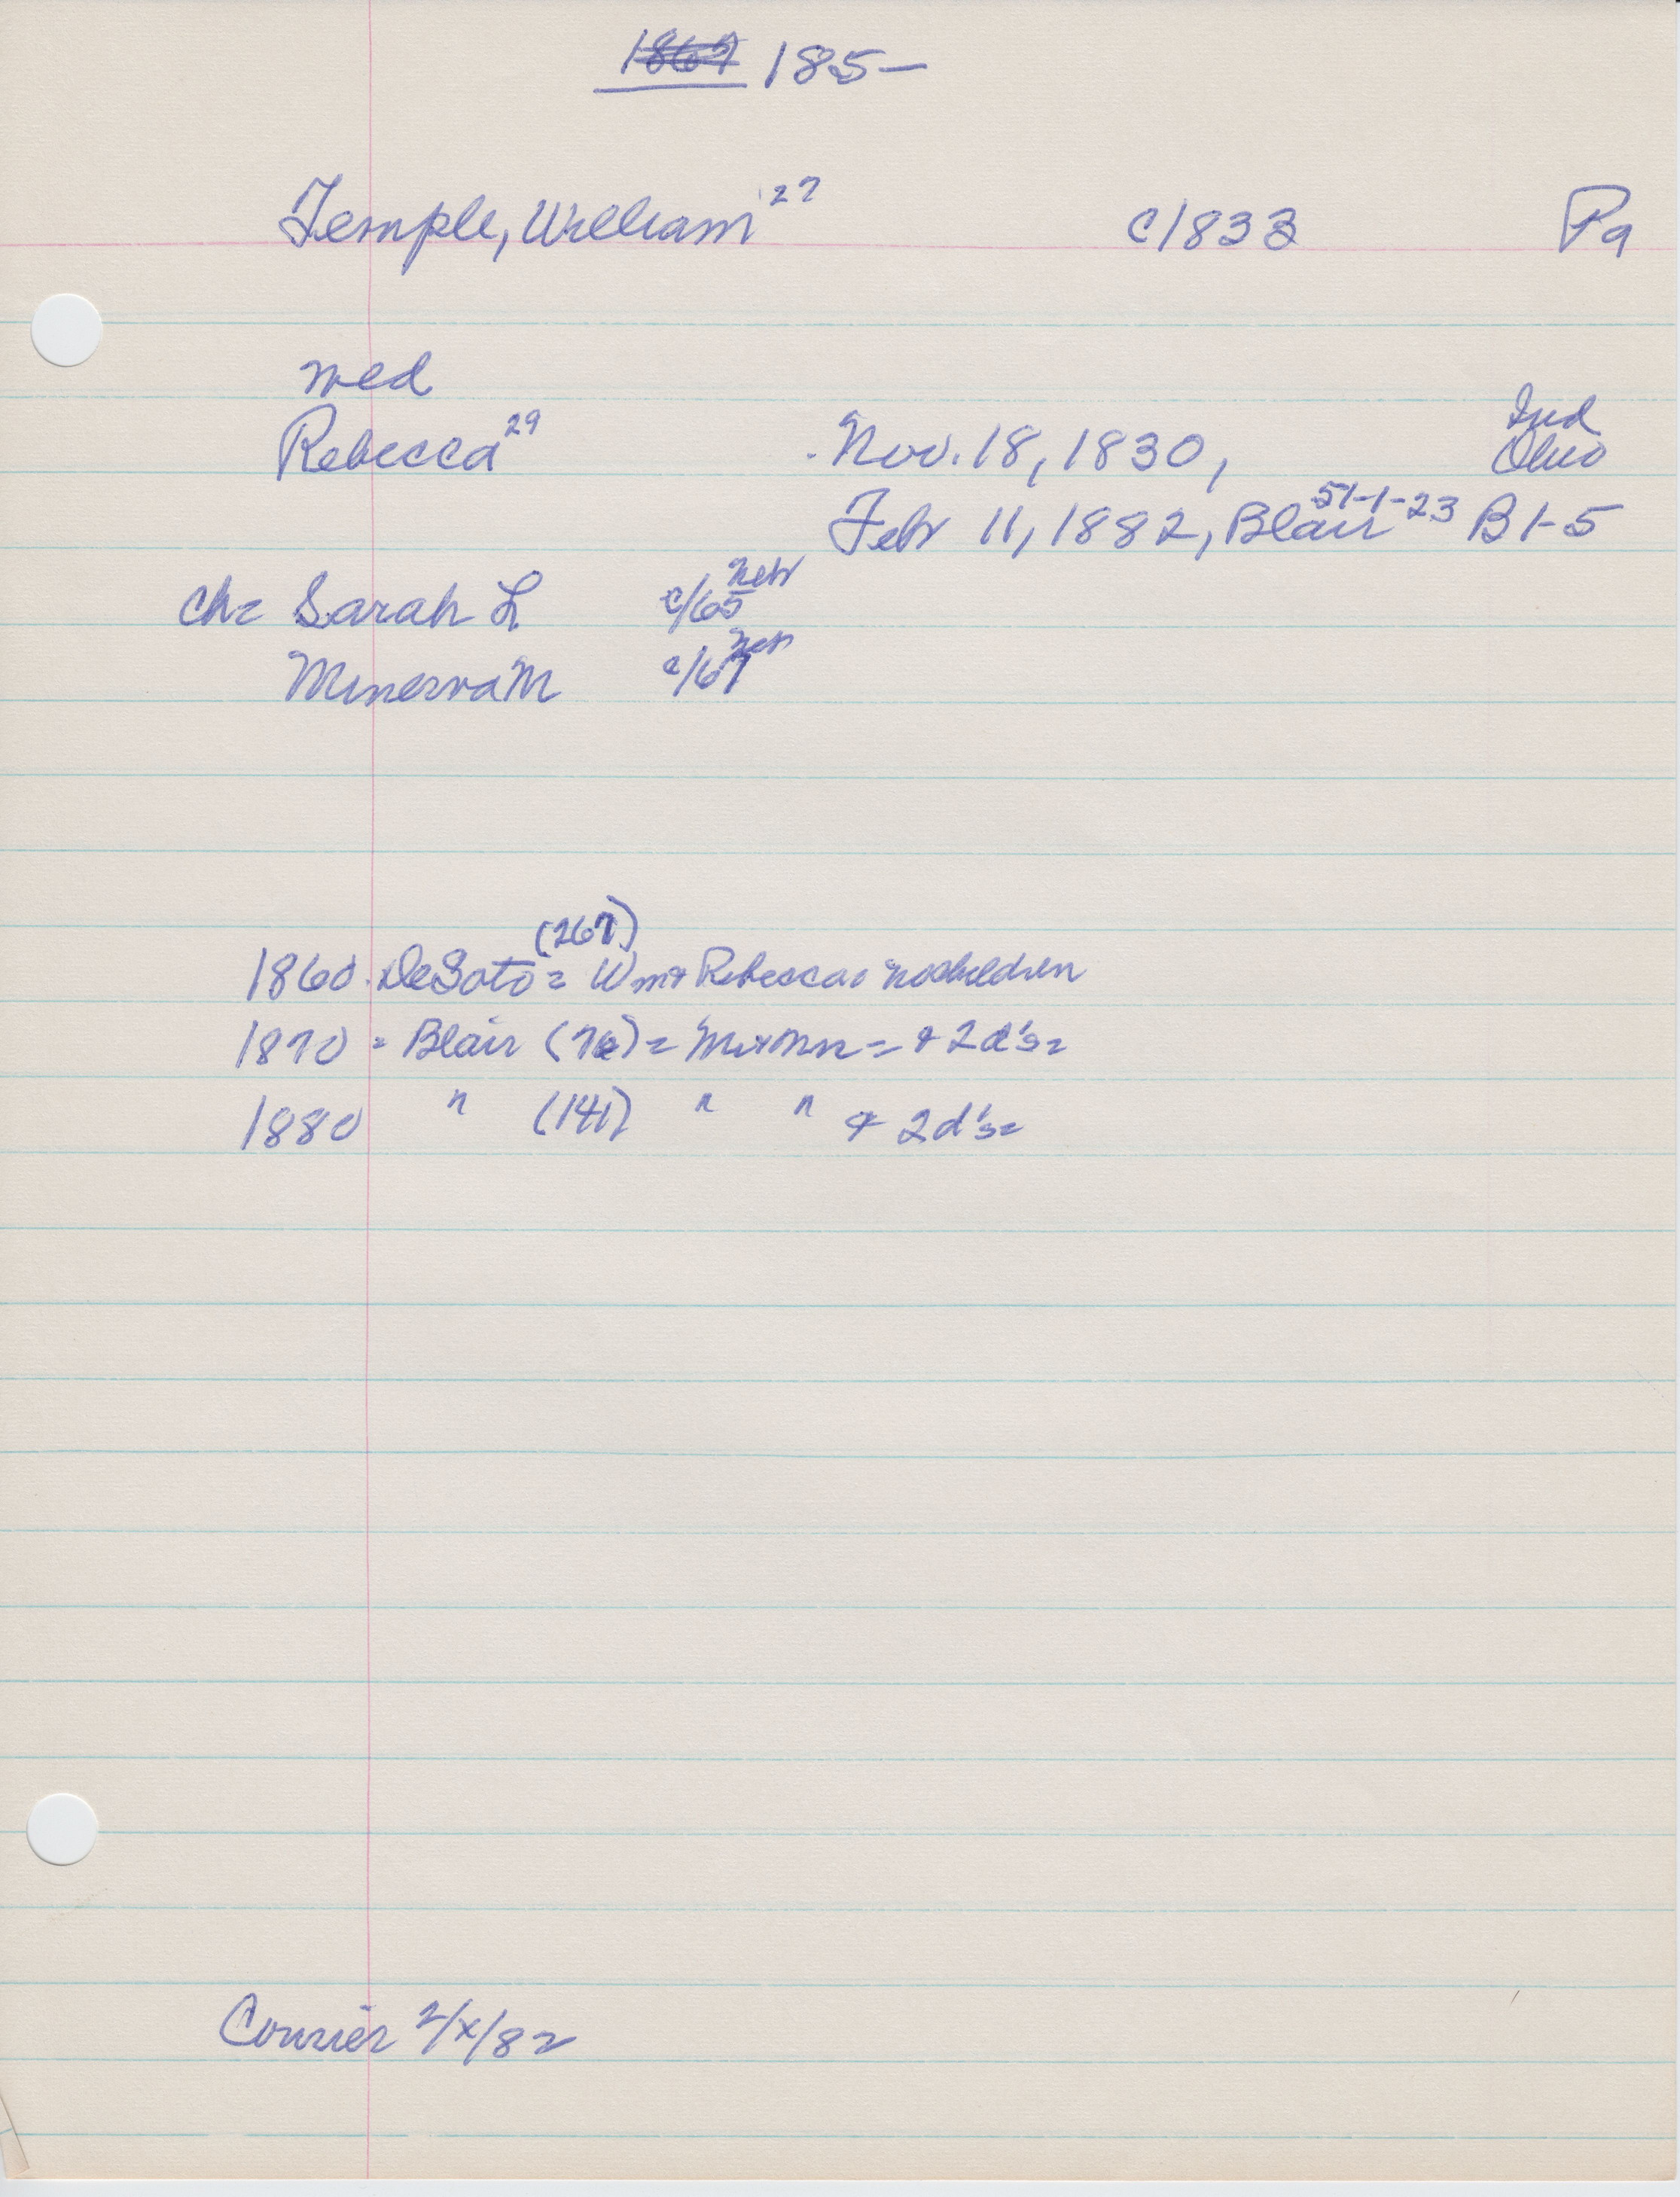 1867 185-
Temple, William 27 c/833 Pa
med
Rebecca 29 Nov. 18, 1830, Ind Ohio
Feb 11, 1882, Blair 51-1-23 B1-5
ch= Sarah L c/65 Neb
Minerva M c/67 Neb
(267)
1860. DeSoto = Wm + Rebecca = no children
1870 = Blair (76) = Mr + Mrs = + 2d's=
1880 " (141) " " + 2d's=
Courier 2/x/82